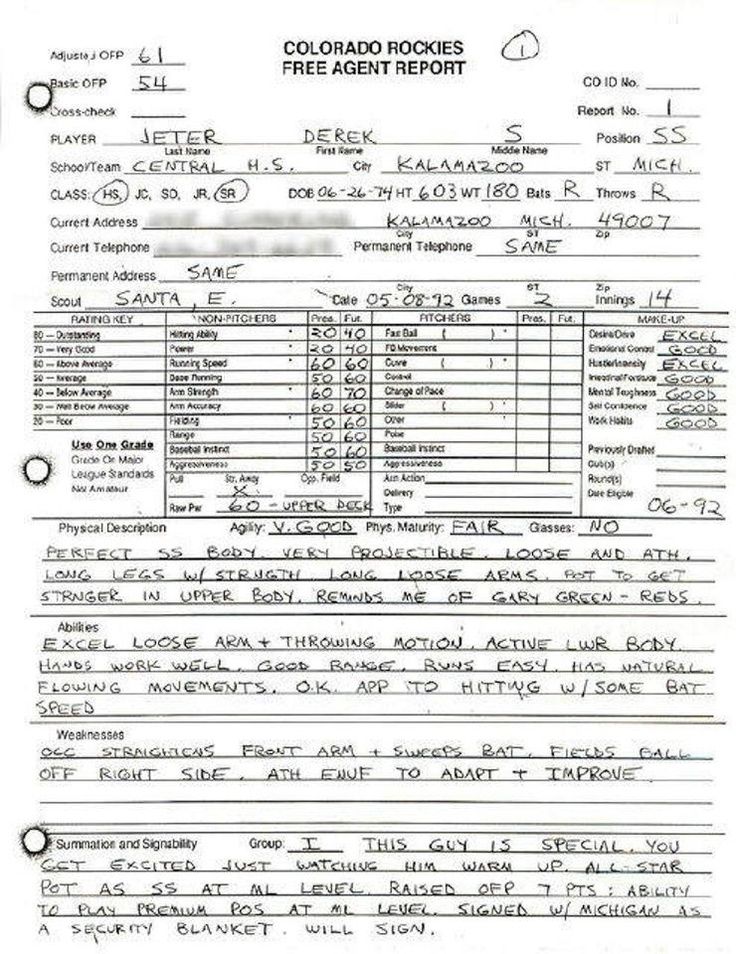 Adjusted OFP 61
COLORADO ROCKIES
FREE AGENT REPORT
1
Basic OFP 54
CO ID No.
Cross-check
Report No. 1
PLAYER JETER DEREK S Position SS
Last Name First Name Middle Name
School/Team CENTRAL H.S. City KALAMAZOO ST MICH.
CLASS: HS, JC, SO, JR, SR DOB 06-26-74 HT 603 WT 180 Bats R Throws R
Current Address KALAMAZOO MICH. 49007
City ST Zip
Current Telephone Permanent Telephone SAME
Permanent Address SAME
City ST Zip
Scout SANTA, E. Date 05-08-92 Games 2 Innings 14
RATING KEY NON-PITCHERS Pres. Fut. PITCHERS Pres. Fut. MAKE-UP
80 — Outstanding Hitting Ability * 20 40 Fast Ball ( ) * Desire/Drive EXCEL
70 — Very Good Power * 20 40 FB Movement Emotional Control GOOD
60 — Above Average Running Speed * 60 60 Curve ( ) * Hustle/Intensity EXCEL
50 — Average Base Running 50 60 Control Intestinal Fortitude GOOD
40 — Below Average Arm Strength * 60 70 Change of Pace Mental Toughness GOOD
30 — Well Below Average Arm Accuracy 60 60 Slider ( ) * Self Confidence GOOD
20 — Poor Fielding * 50 60 Other * Work Habits GOOD
Use One Grade Range 50 60 Poise
Grade On Major Baseball Instinct 50 60 Baseball Instinct Previously Drafted
League Standards Aggressiveness 50 50 Aggressiveness Club(s)
Not Amateur Pull Str. Away Opp. Field Arm Action Round(s)
X Delivery Date Eligible
Raw Pwr 60 - UPPER DECK Type 06-92
Physical Description Agility: V. GOOD Phys. Maturity: FAIR Glasses: NO
PERFECT SS BODY. VERY PROJECTIBLE. LOOSE AND ATH.
LONG LEGS W/ STRNGTH. LONG LOOSE ARMS. POT TO GET
STRNGER IN UPPER BODY. REMINDS ME OF GARY GREEN - REDS.
Abilities
EXCEL LOOSE ARM + THROWING MOTION. ACTIVE LWR BODY.
HANDS WORK WELL. GOOD RANGE. RUNS EASY. HAS NATURAL
FLOWING MOVEMENTS. O.K. APP TO HITTING W/ SOME BAT
SPEED
Weaknesses
OCC STRAIGHTENS FRONT ARM + SWEEPS BAT. FIELDS BALL
OFF RIGHT SIDE. ATH ENUF TO ADAPT + IMPROVE
Summation and Signability Group: I THIS GUY IS SPECIAL. YOU
GET EXCITED JUST WATCHING HIM WARM UP. ALL-STAR
POT AS SS AT ML LEVEL. RAISED OFP 7 PTS: ABILITY
TO PLAY PREMIUM POS AT ML LEVEL. SIGNED W/ MICHIGAN AS
A SECURITY BLANKET. WILL SIGN.